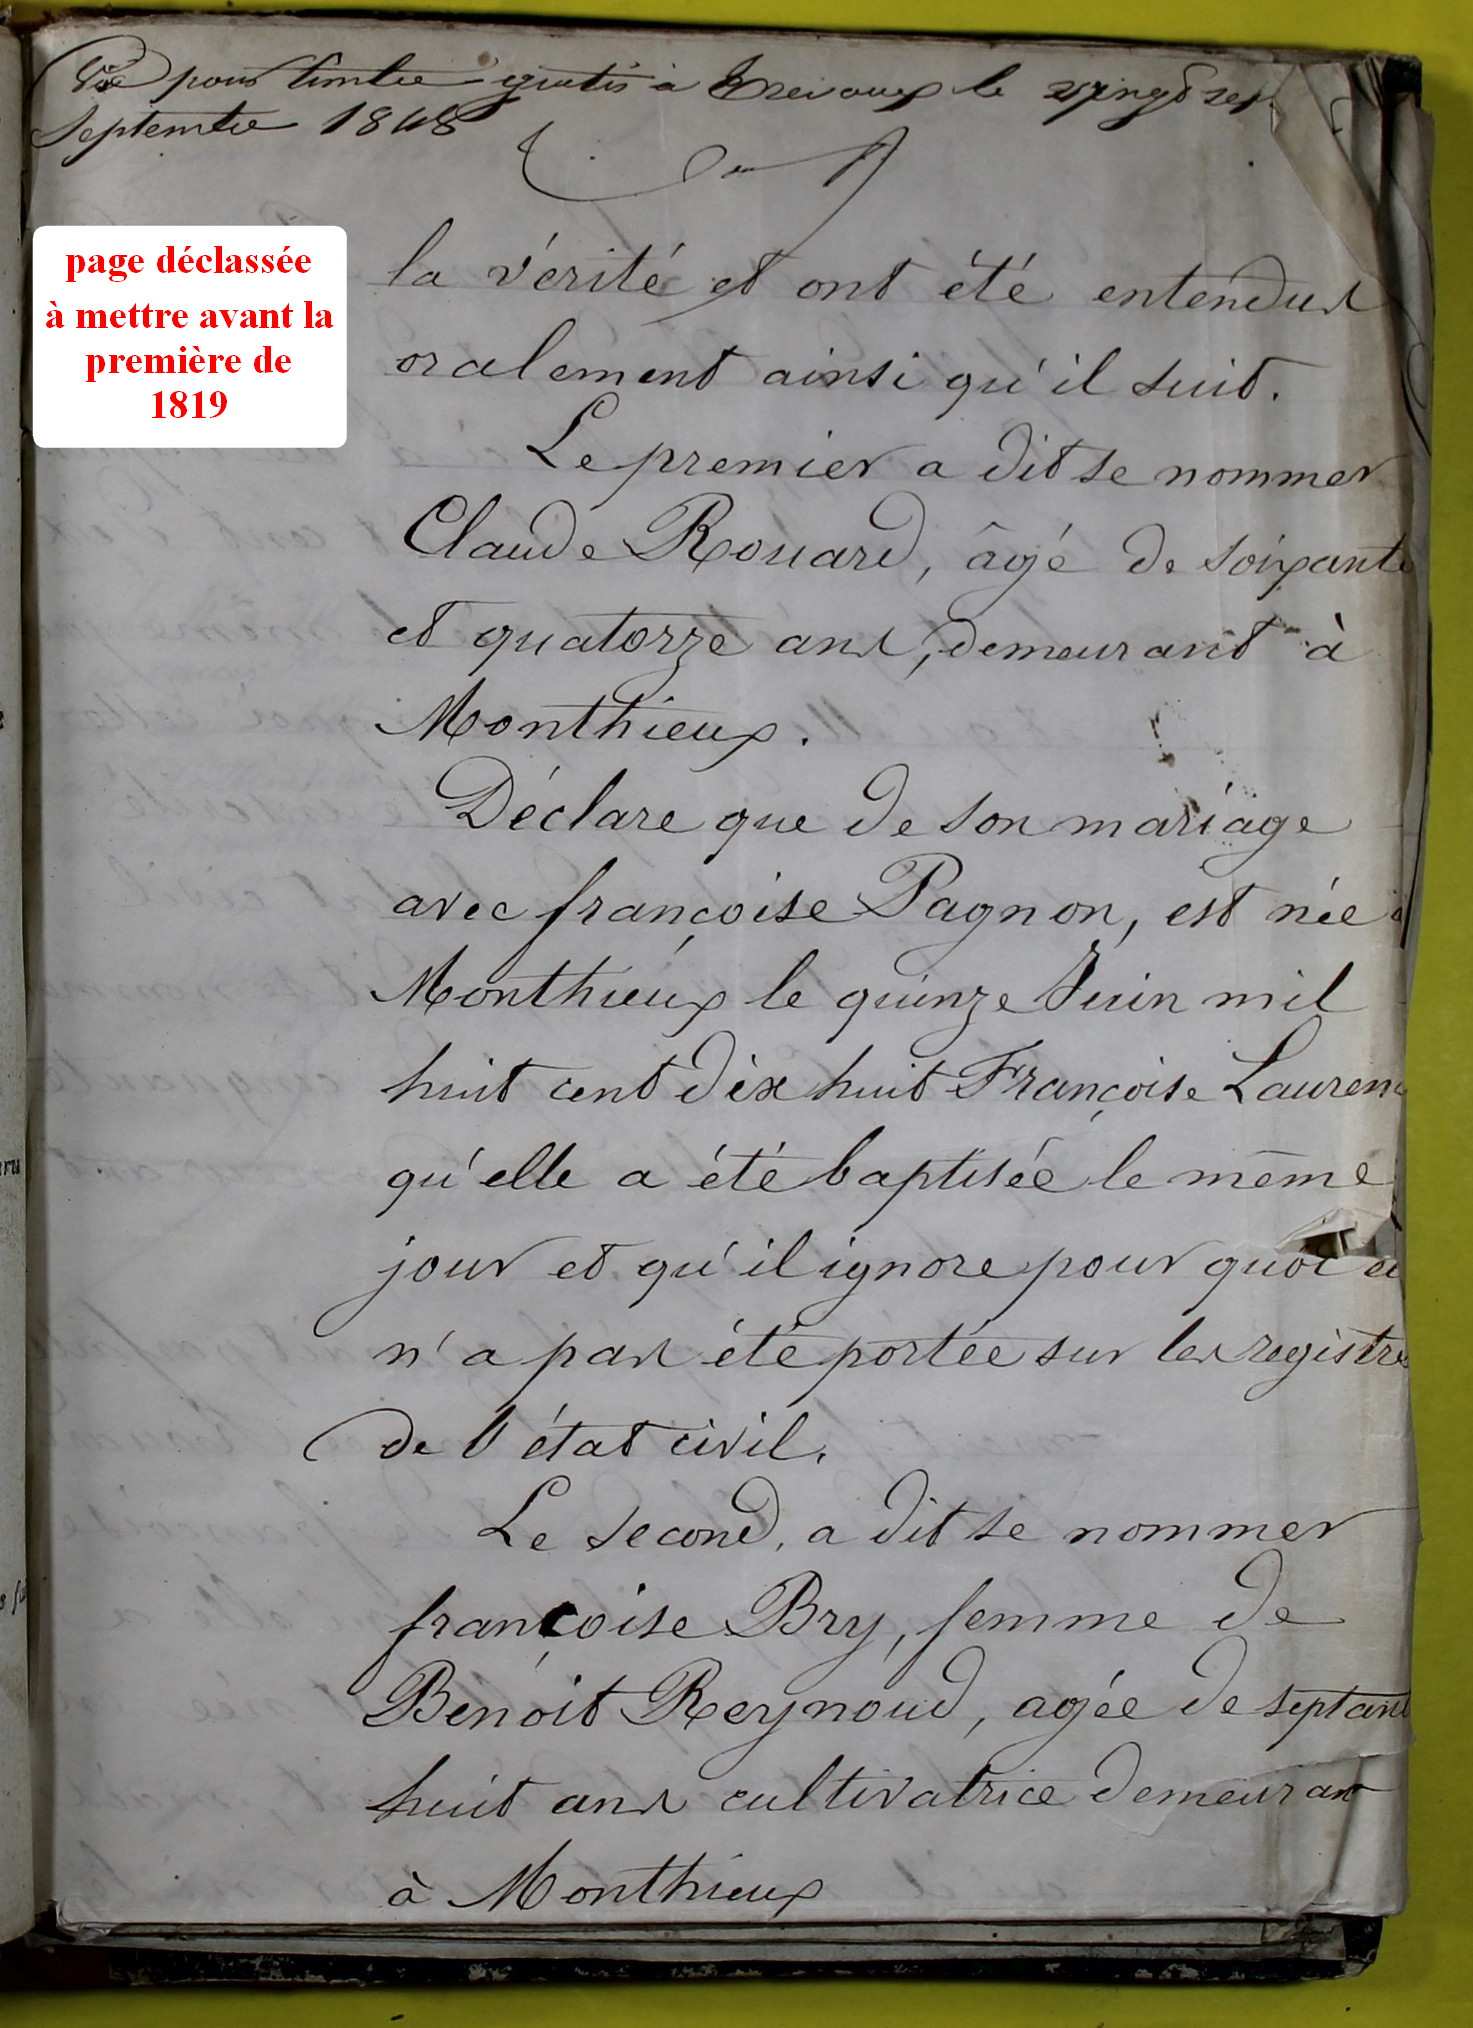 Vu pour timbre gratis à Trévoux le vingt sept
Septembre 1848
page déclassée
à mettre avant la
première de
1819
la vérité et ont été entendus
oralement ainsi qu'il suit.
Le premier a dit se nommer
Claude Rouard, âgé de soixante
et quatorze ans, demeurant à
Monthieux.
Déclare que de son mariage
avec françoise Pagnon, est née à
Monthieux le quinze Juin mil
huit cent dix huit Françoise
qu'elle a été baptisée le même
jour et qu'il ignore pour quoi
n'a pas été portée sur les registre
de l'état civil.
Le second, a dit se nommer
françoise Bry, femme de
Benoit Reynoud, agée de
huit ans cultivatrice demeurant
à Monthieux